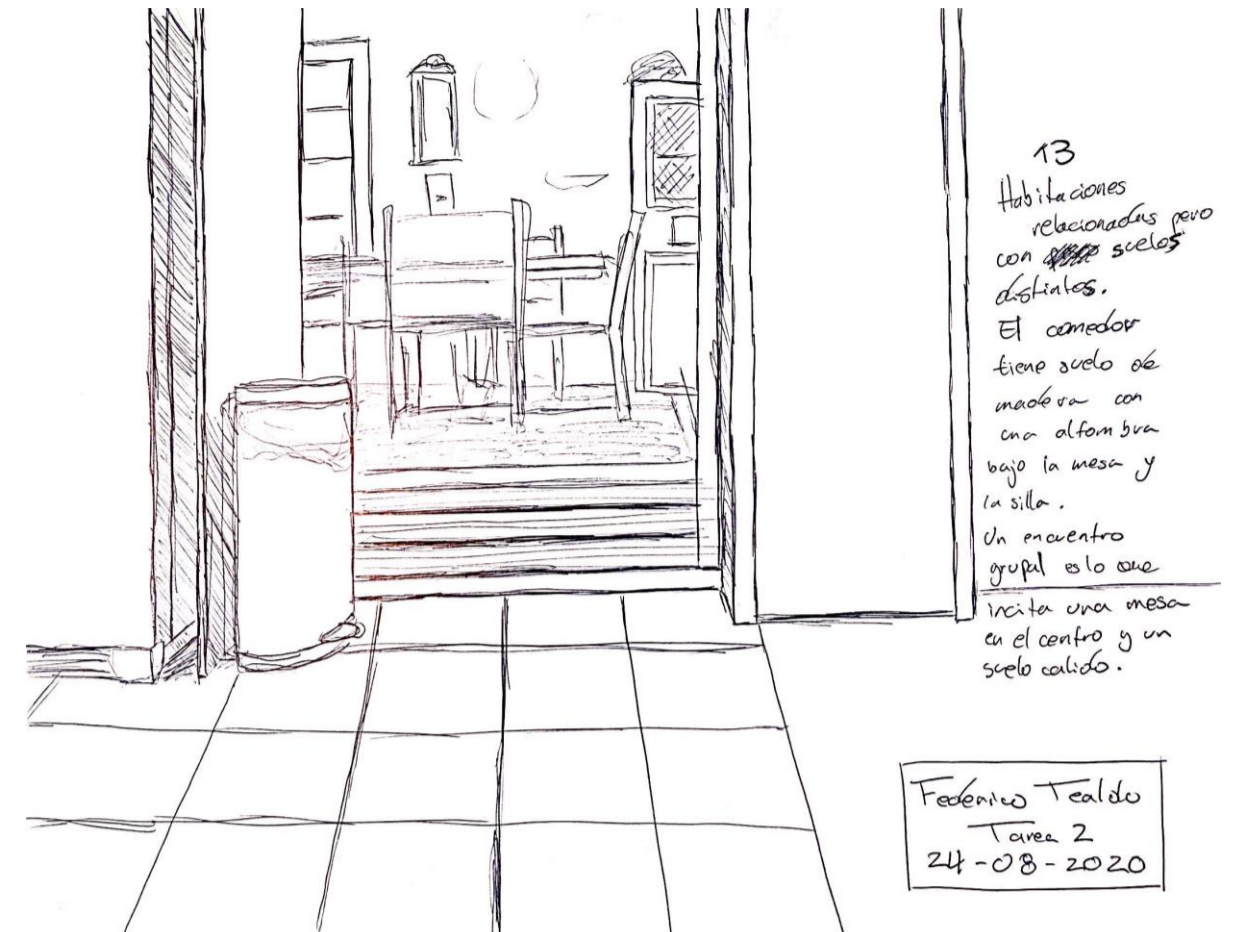 13
Habitaciones
relacionadas pero
con suelos
distintos.
El comedor
tiene suelo de
madera con
una alfombra
bajo la mesa y
la silla.
Un encuentro
grupal es lo que
incita una mesa
en el centro y un
suelo calido.
Federico Tealdo
Tarea 2
24-08-2020